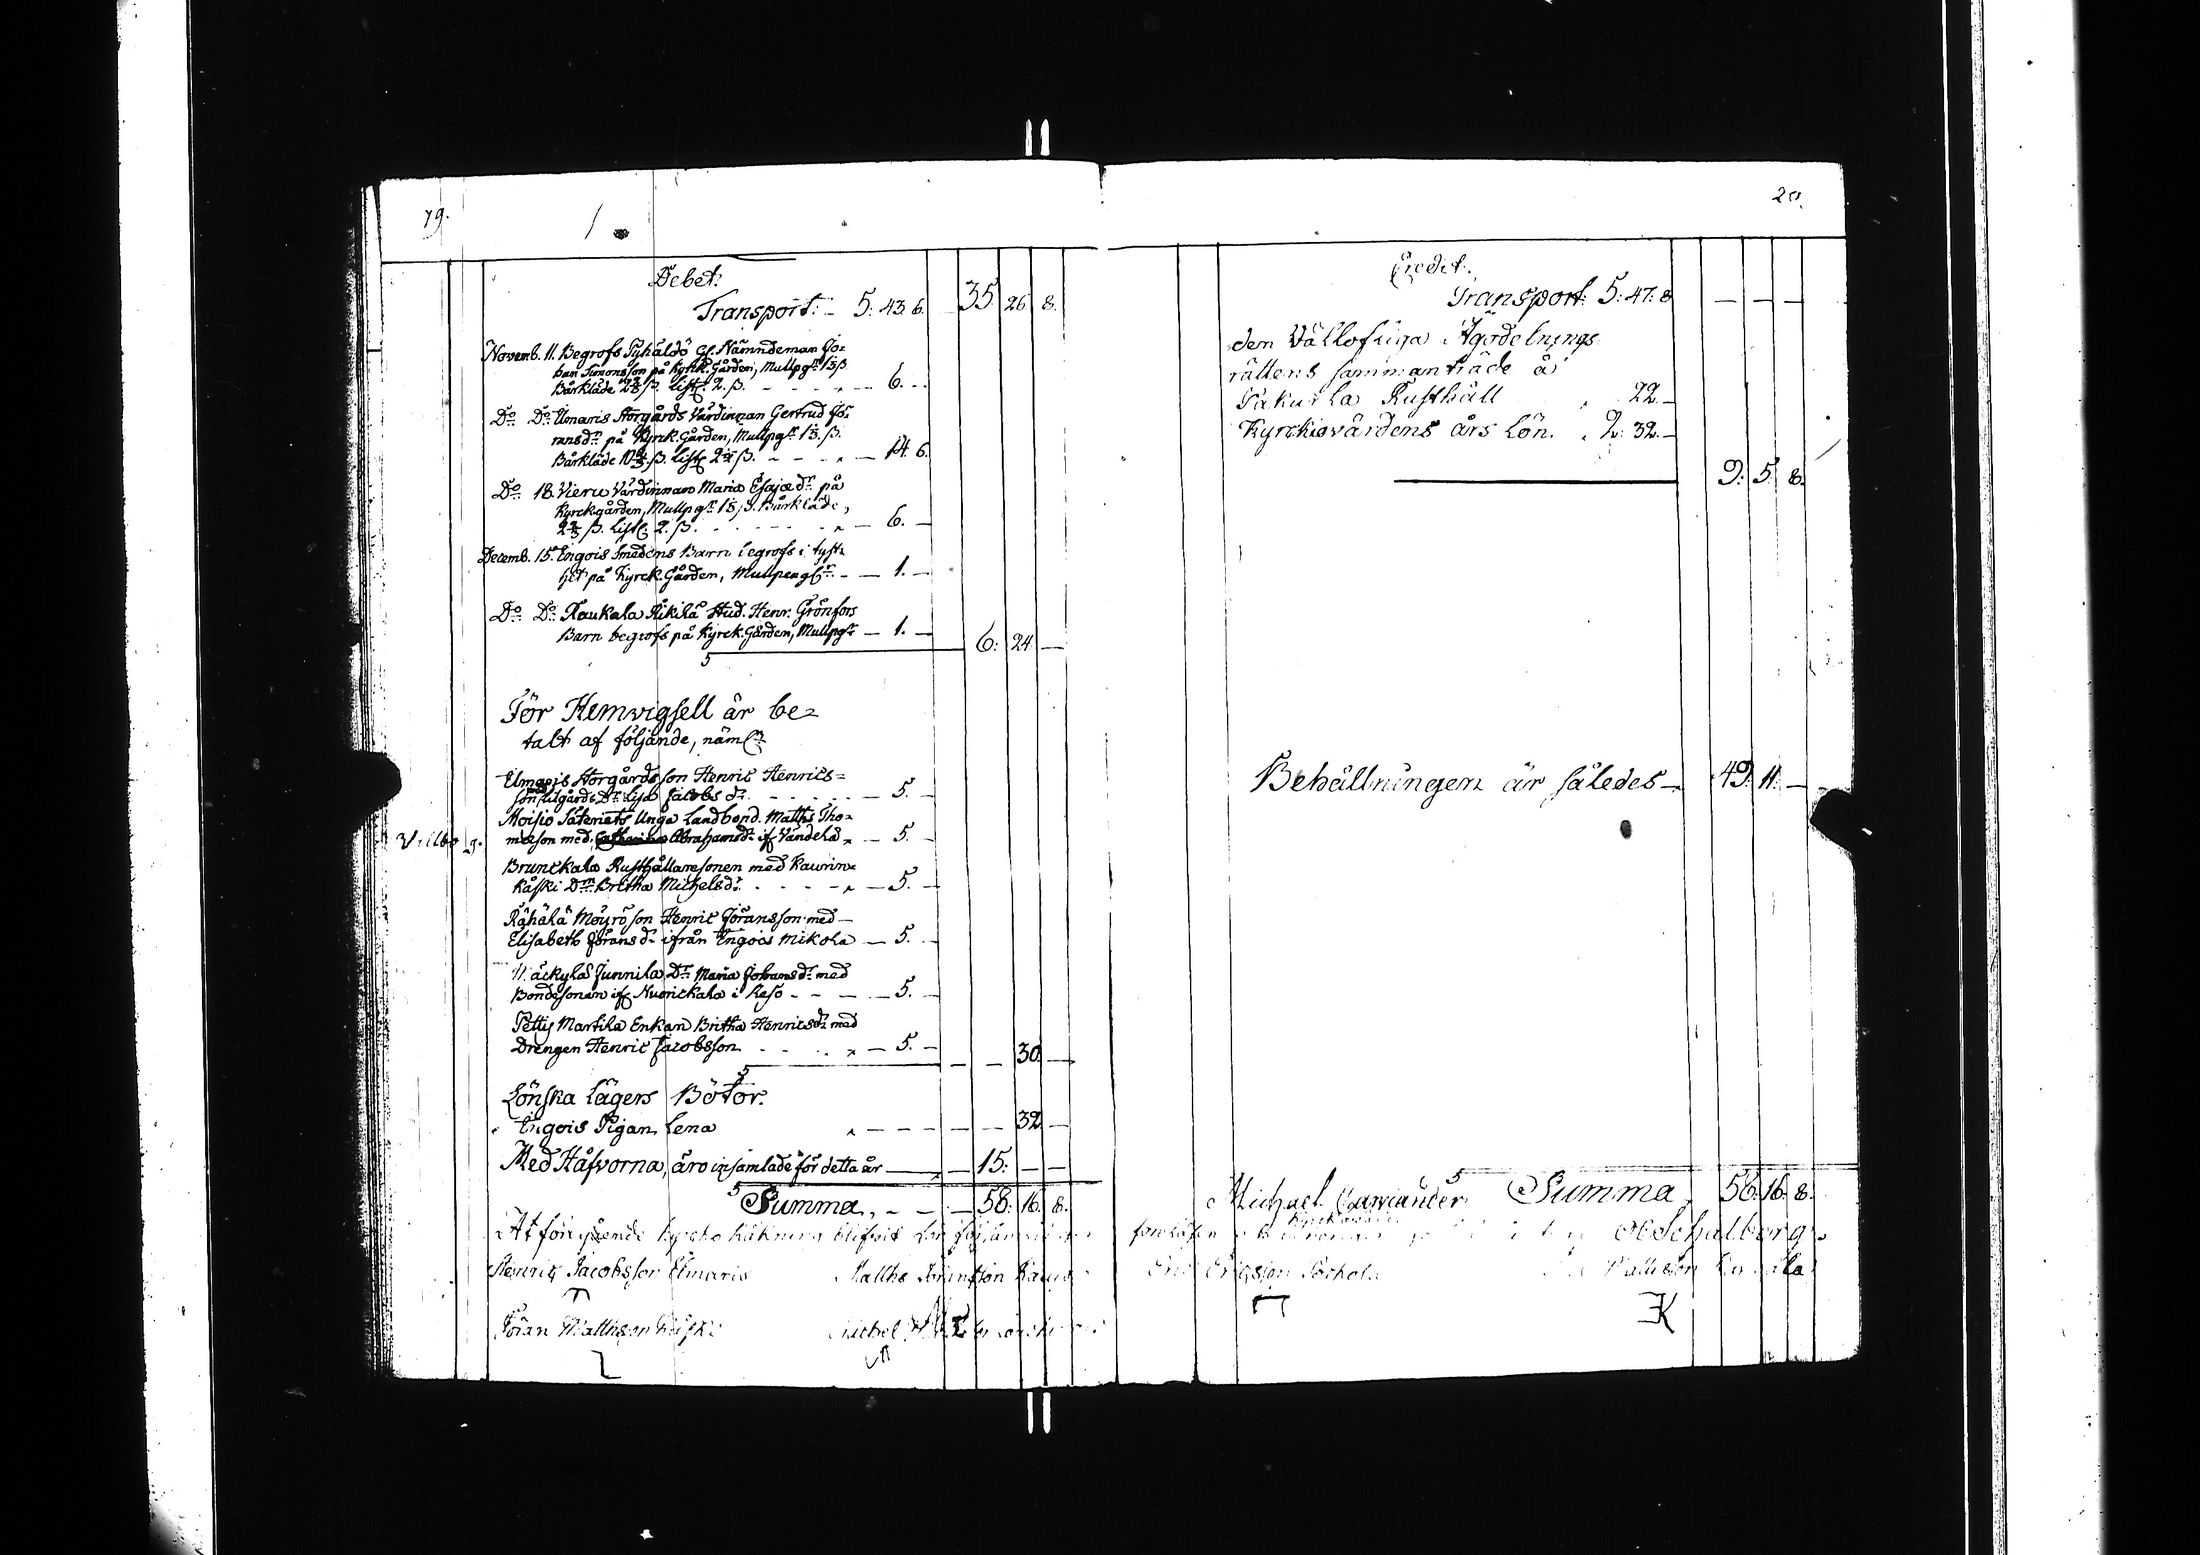 79.
Debet.
Transport: — 5: 43. 6. 35 26 8.
Novemb. 11. Begrofs Pyhäldö Gl. Nämndeman Jo=
han Simonsson på Kyrk. Gården, Mullpgr 1⅓ß
Bårkläde 2⅔ ß. List. 2. ß. — 6. —
Do Do Elmaris Storgårds Värdinnan Gertrud Jö=
ransdr på Kyrck. Gården, Mullpgr 1⅓. ß.
Bårkläde ß. List ß. — 14. 6.
Do 18. Vieru Värdinnan Maria Esajædr på
Kyrckgården, Mullpgr 1⅓ ß. Bårkläde,
2⅔ ß. List. 2. ß. — 6. —
Decemb. 15. Engois Smedens Barn begrofs i tyst=
het på Kyrck. Gården, Mullpengr — 1. —
Do Do Raukala Rikilä Stud. Henr. Grönfors
Barn begrofs på Kyrck. Gården, Mullpgr — 1. — 6: 24 —
För Hemvigsell är be=
talt af följande, näml
Elmaris Storgårds son Henric Henrics=
son med Lilgårds Dr. Lisa Jacobs dr. — 5. —
Moisio Säteriets Unga Landbond. Matths Tho=
masson med Abrahamsdr if Vändelä — 5. —
Brunckala Rusthållaresonen med Kaurin=
käski Dr. Britha Michelsdr. — 5. —
Rähälä Möyrö son Henric Jöransson med —
Elisabeth Jöransdr ifrån Engois Mikola — 5. —
Näckylä Junnila Dr. Maria Johansdr. med
Bondesonen if Nuorickala i Reso — 5. —
Pettis Martila Enkan Britha Henricsdr med
Drengen Henric Jacobsson — 5. — 30. —
Lönska Lägers Böter.
Engois Pigan Lena — 32 —
Med Håfvorna, äro insamlade för detta år — 15: — —
Summa, — 58: 16. 8.
At föregående Kyrcko Räkning blifvit
Henric Jacobsson Elmaris Matths
Jöran Matthsson Michel
20.
Credit.
Transport: 5: 47: 8 — — —
den Vällofliga Ägodelnings
rättens sammanträde å
Pakurla Rusthåll 22. —
Kyrckiovärdens års Lön. 2: 32. —
9: 5 8.
Behållningen är således — 49: 11. —
Michael Summa 58: 16. 8.